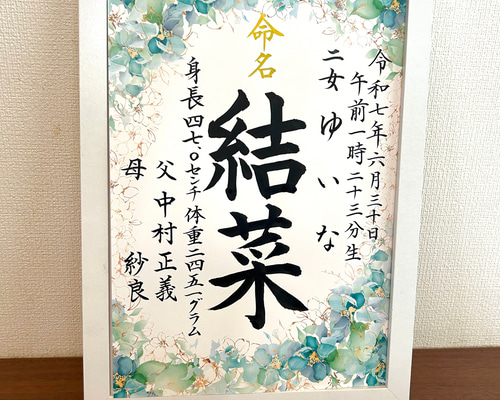 命名
令和七年六月三十日
午前一時二十三分生
二女 ゆいな
結菜
身長四七、〇センチ 体重二四五一グラム
父 中村正義
母 紗良